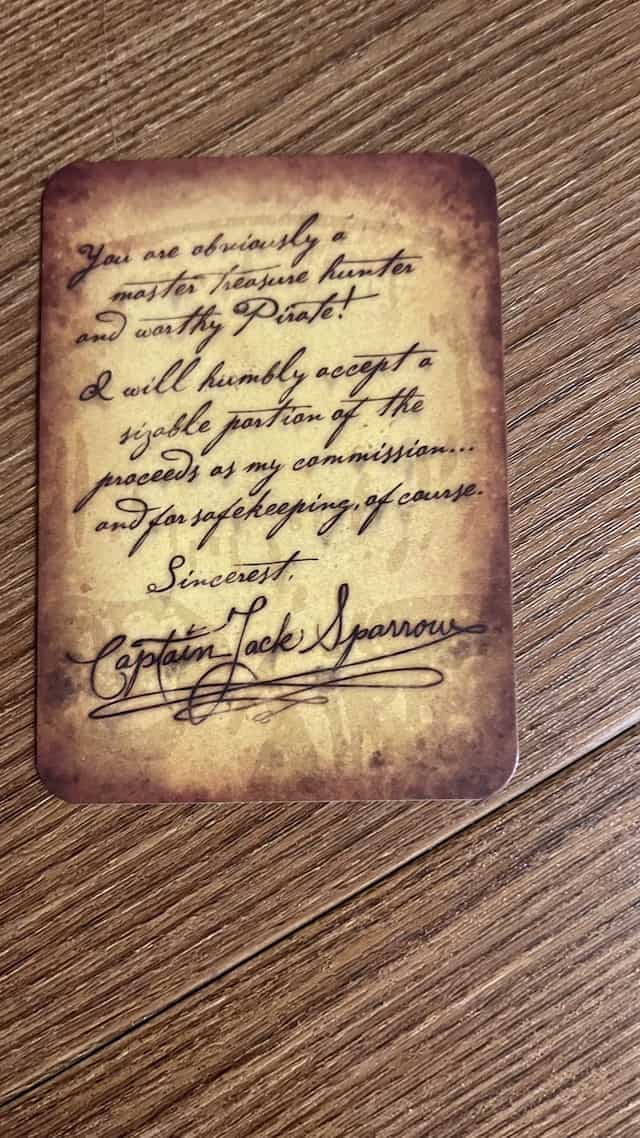 You are obviously a
master treasure hunter
and worthy Pirate!
I will humbly accept a
sizable portion of the
proceeds as my commission...
and for safekeeping, of course.
Sincerest,
Captain Jack Sparrow